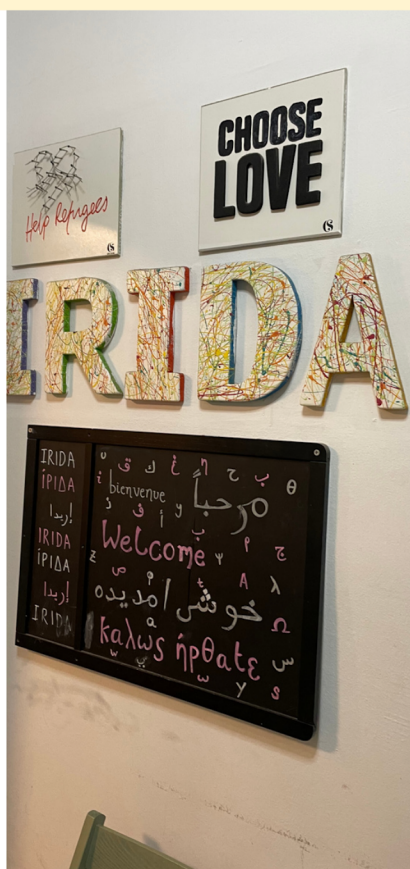 Help Refugees
CHOOSE
LOVE
IRIDA
IRIDA
ΙΡΙΔΑ
إريدا
IRIDA
ΙΡΙΔΑ
إريدا
IRIDA
bienvenue
مرحباً
Welcome
خوش امدیده
καλως ήρθατε